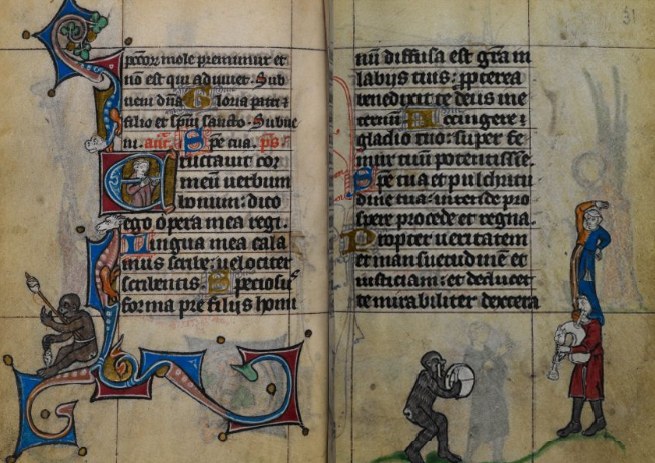 pccor̄ mole premimur et
nō est qui adiuuet · Sub
ueni dn̄a Gloria patri ⁊
filio et spūi sancto · Subue
ni. an̄t. Spe tua. ps̄.
Eructauit cor
meū uerbum
bonum: dico
ego opera mea regi.
Lingua mea cala
mus scribe: uelociter
scribentis. Speciosus
forma pre filijs homi
31
nū diffusa est grā in
labijs tuis: ꝓpterea
benedixit te deus ine
ternū. Accingere
gladio tuo: super fe
mur tuū potentisse.
Spe tua et pulchritu
dine tua: intende pro
spere procede et regna.
Propter ueritatem
et mansuetudinē et
iusticiam: et deducet
te mirabiliter dextera